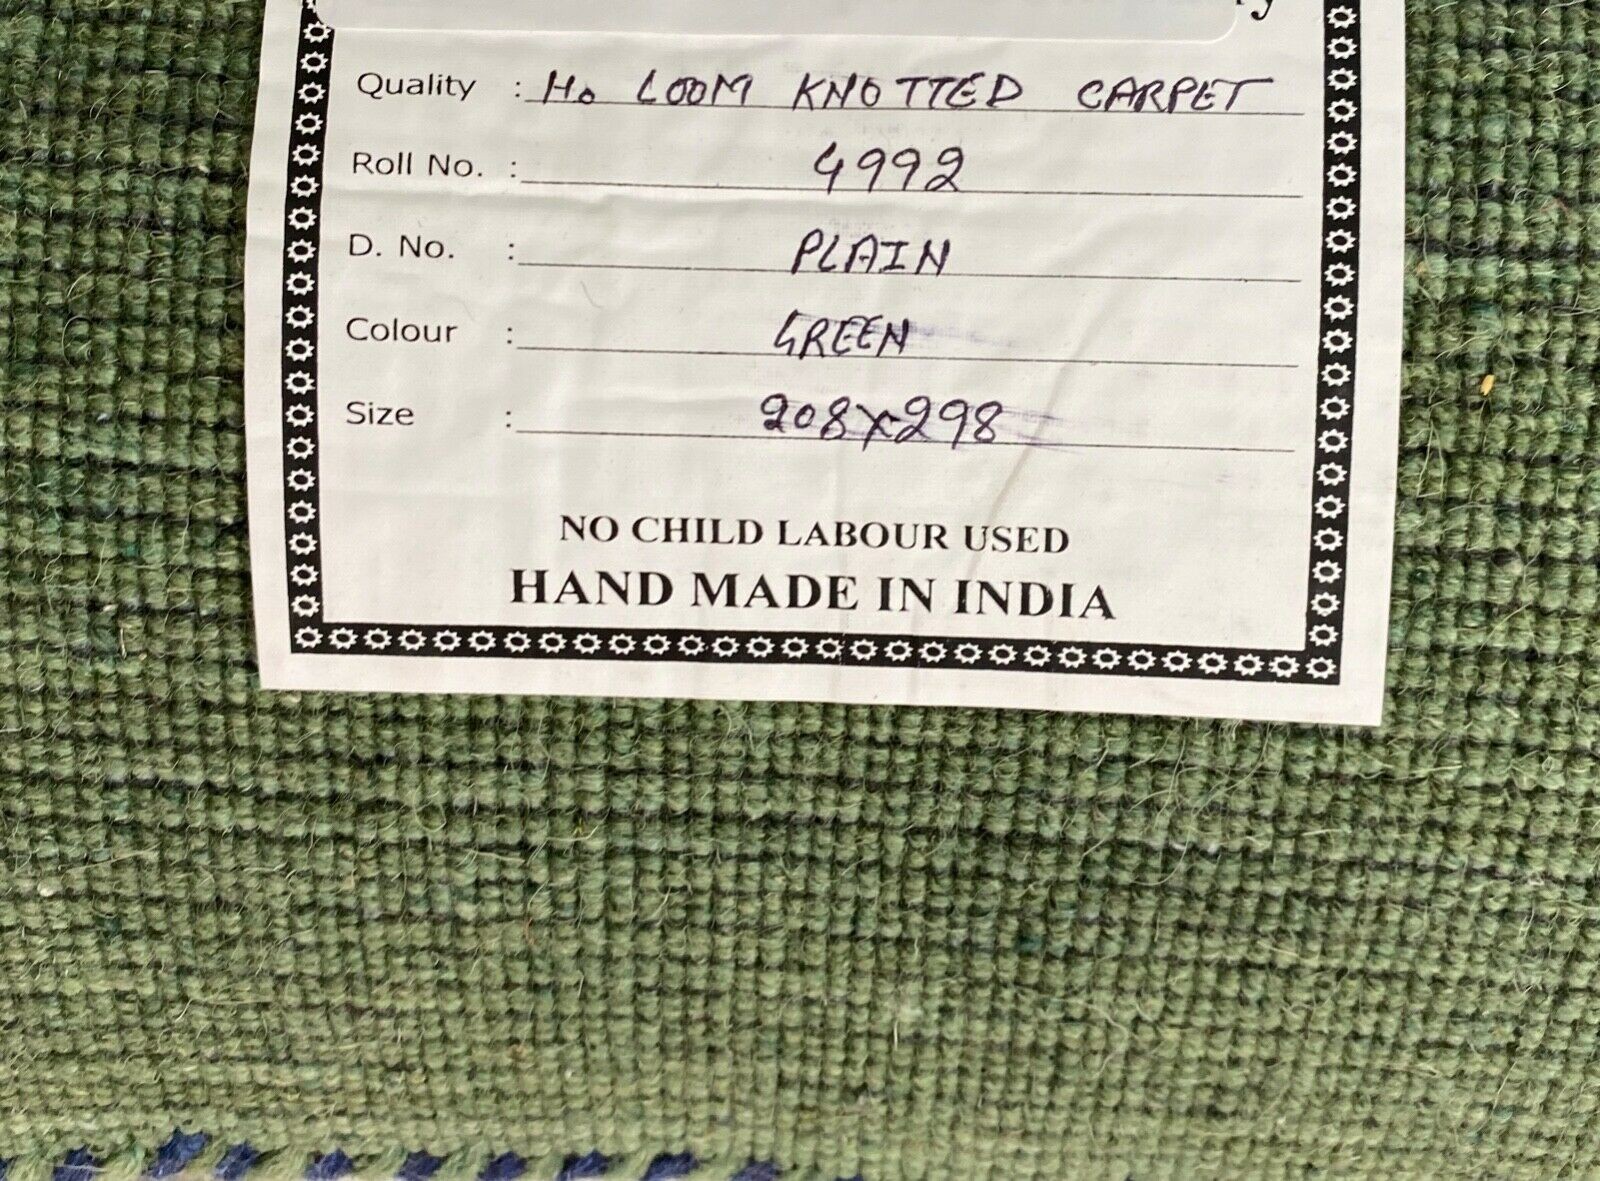 Quality : H. LOOM KNOTTED CARPET
Roll No. : 4992
D. No. : PLAIN
Colour : GREEN
Size : 208x298
NO CHILD LABOUR USED
HAND MADE IN INDIA